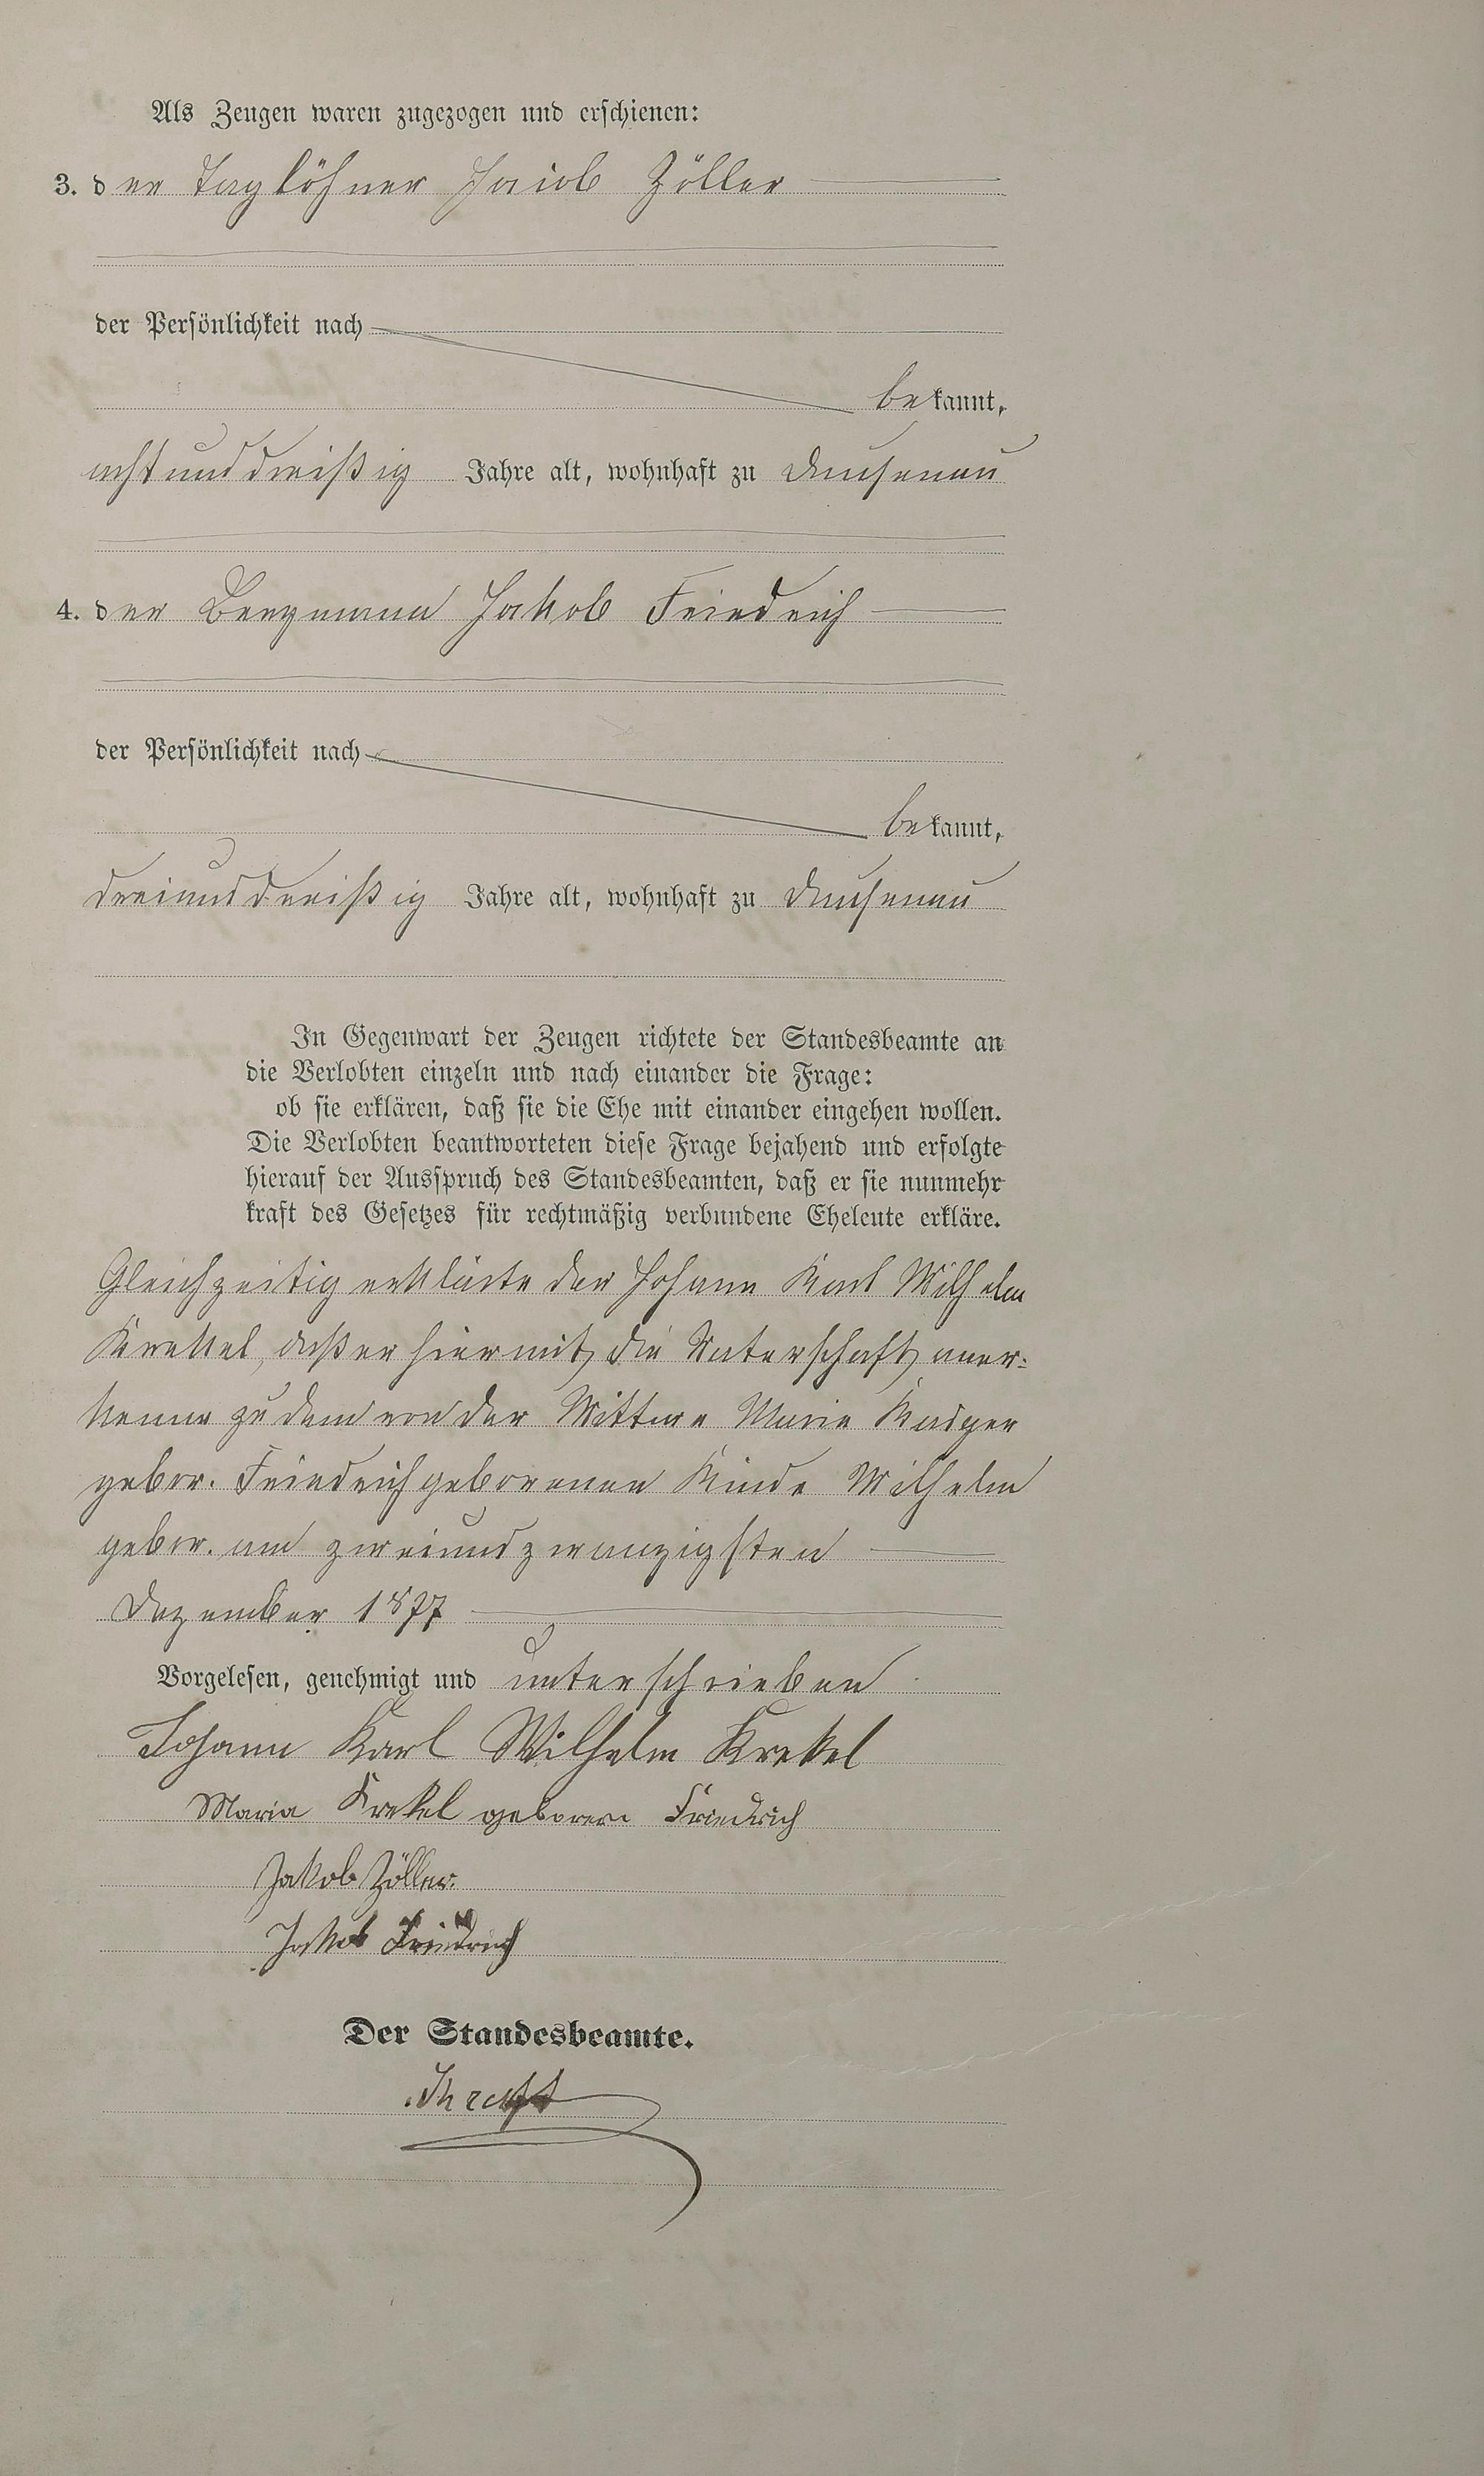 Als Zeugen waren zugezogen und erschienen:
3. der Taglöhner Jacob Zöller
der Persönlichkeit nach
bekannt,
achtunddreißig Jahre alt, wohnhaft zu Dausenau
4. der Bergmann Jakob Friedrich
der Persönlichkeit nach
bekannt,
dreiunddreißig Jahre alt, wohnhaft zu Dausenau
In Gegenwart der Zeugen richtete der Standesbeamte an
die Verlobten einzeln und nach einander die Frage:
ob sie erklären, daß sie die Ehe mit einander eingehen wollen.
Die Verlobten beantworteten diese Frage bejahend und erfolgte
hierauf der Ausspruch des Standesbeamten, daß er sie nunmehr
kraft des Gesetzes für rechtmäßig verbundene Eheleute erkläre.
Gleichzeitig erklärte der Johann Karl Wilhelm
Krekel, daß er hiermit die Vaterschaft aner-
kenne zu dem von der Wittwe Maria
gebor. Friedrich geborenen Kinde Wilhelm
gebor. am zweiundzwanzigsten
Dezember 1877
Vorgelesen, genehmigt und unterschrieben
Johann Karl Wilhelm Krekel
Maria Krekel geborene Friedrich
Jakob Zöller.
Jakob Friedrich
Der Standesbeamte.